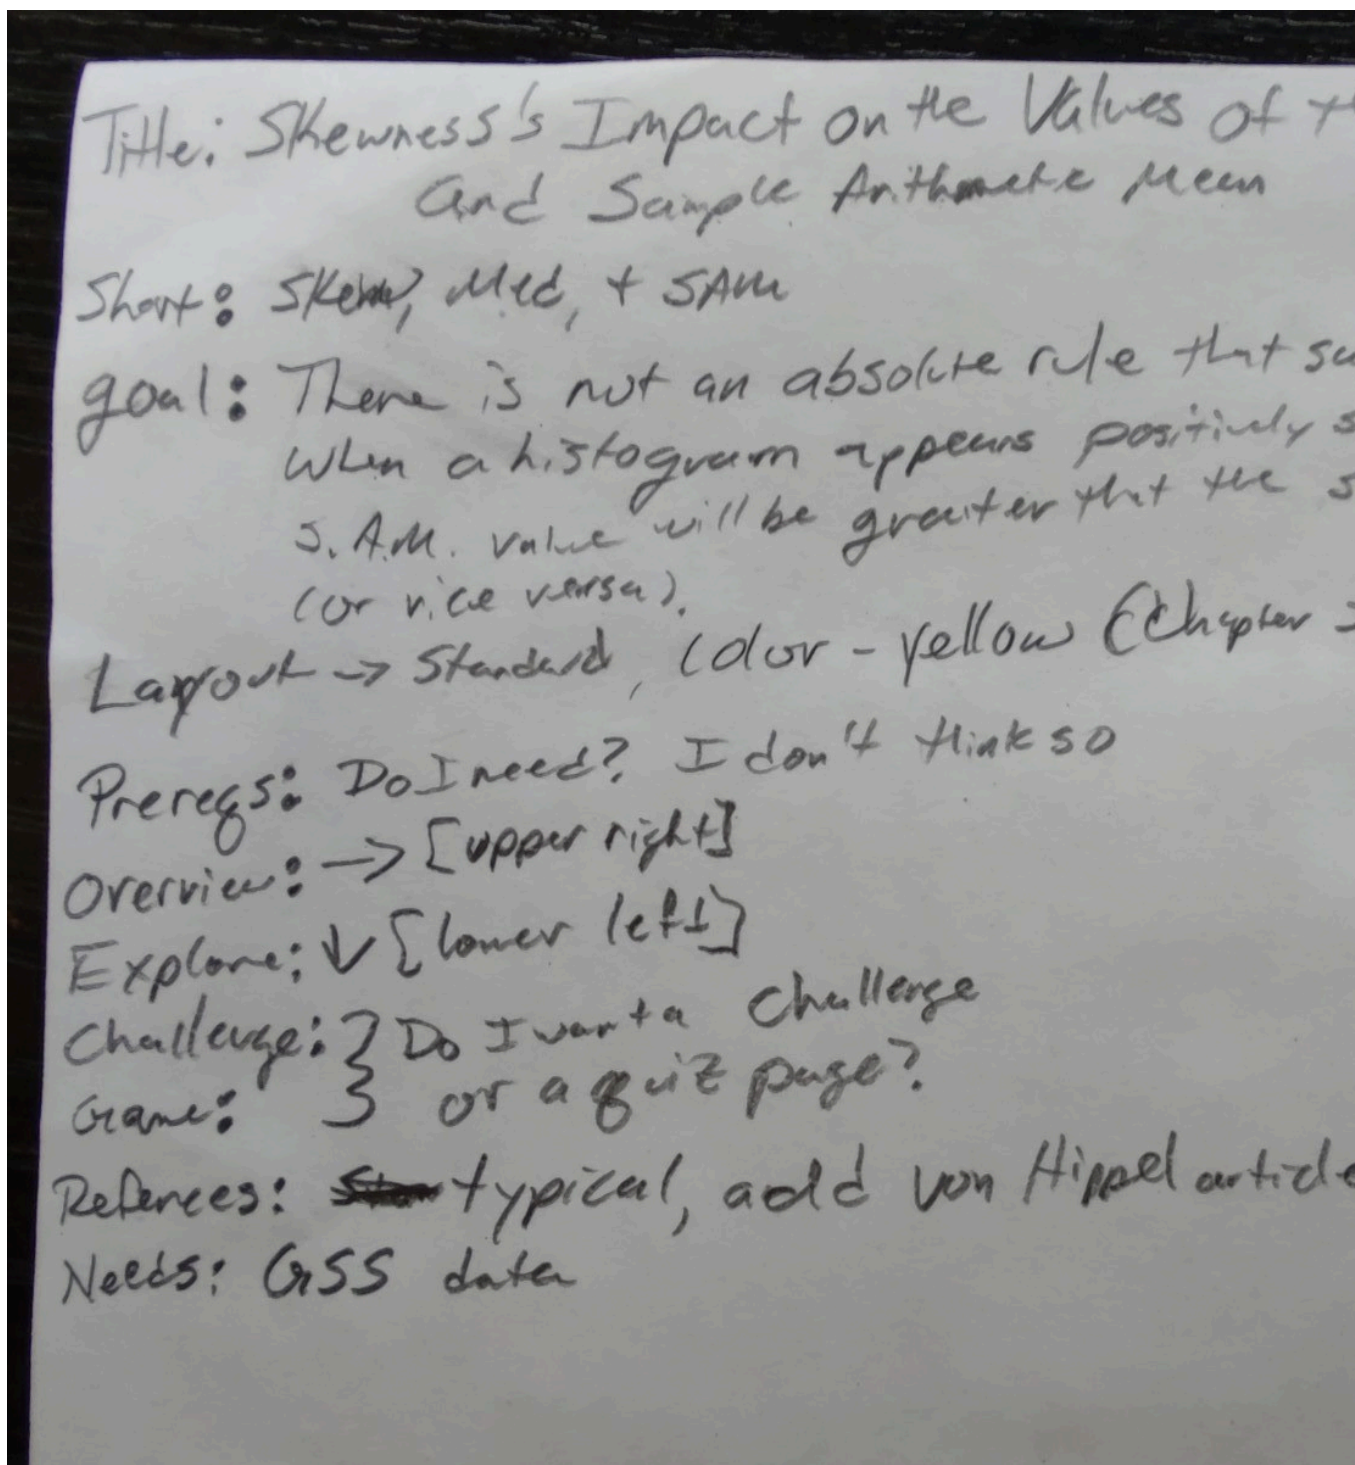 Title: Skewness's Impact on the Values of
and Sample Arithmetic Mean
Short: Skew, Med, + SAM
goal: There is not an absolute rule that
when a histogram appears positively
S.A.M. value will be greater that the
(or vice versa).
Layout -> Standard, Color - yellow (Chapter
Prereqs: Do I need? I don't think so
Overview: -> [upper right]
Explore: ↓ [lower left]
Challenge: } Do I want a challenge
Game: } or a quiz page?
Refences: typical, add von Hippel article
Needs: GSS data